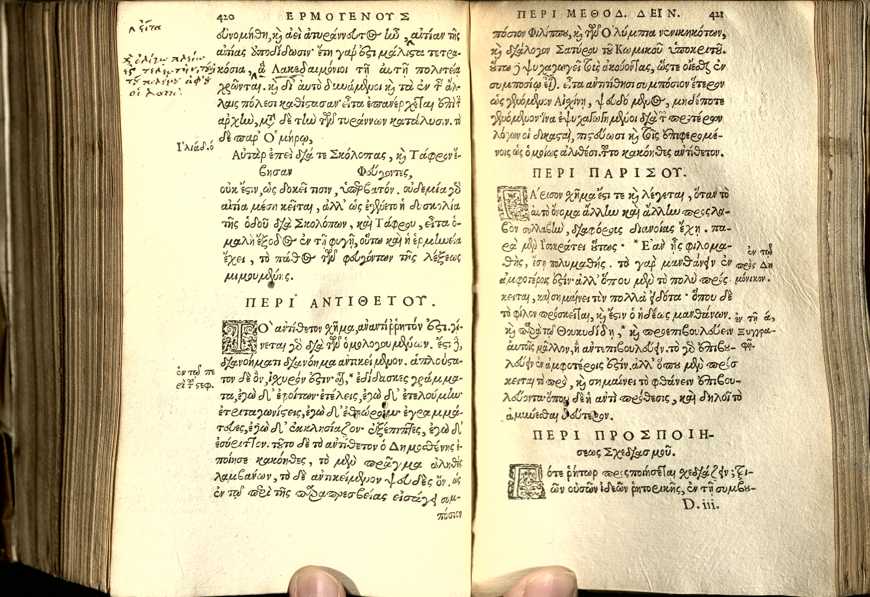 420 ΕΡΜΟΓΕΝΟΥΣ
αἰτίας ὑποδίδωσιν· ἔτη γάρ ὅτι μάλιστα τετρα-
κόσια, Λακεδαιμόνιοι τῇ αὐτῇ πολιτείᾳ
χρῶνται. καὶ δι' αὐτὸ δυνάμενοι καὶ τὰ ἐν ταῖς ἄλ-
λαις πόλεσι καθίστασαν· εἶτα ἐπανέρχεται ἐπὶ τὴν
ἀρχὴν, μετὰ δὲ τὴν τῶν τυράννων κατάλυσιν. τὸ
δὲ παρ' Ὁμήρῳ,
Ἰλιάδ. ο
Αὐτὰρ ἐπεὶ διά τε Σκόλοπας, καὶ Τάφρον ἔ-
βησαν Φεύγοντες,
οὐκ ἔστιν, ὡς δοκεῖ τισιν, ὑπερβατόν. οὐδεμία γὰρ
αἰτία μέση κεῖται, ἀλλ' ὡς ἐγένετο ἡ δυσκολία
τῆς ὁδοῦ διὰ Σκολόπων, καὶ Τάφρου, εἶτα ὁ-
μαλὴ ἔξοδος ἐν τῇ φυγῇ, οὕτω καὶ ἡ ἑρμηνεία
ἔχει, τὸ πάθος τῶν φευγόντων τῆς λέξεως
μιμουμένης.
ΠΕΡΙ ΑΝΤΙΘΕΤΟΥ.
Τὸ ἀντίθετον σχῆμα, ἀναντίῤῥητόν ἐστι. γί-
νεται γὰρ διὰ τῶν ὁμολογουμένων. ἔστι γὰρ
διανοήματι διανόημα ἀντικείμενον. ἁπλούστα-
τον δὲ ὂν, ἰσχυρόν ἐστιν· οἷον, * ἐδίδασκες γράμμα-
τα, ἐγὼ δ' ἐφοίτων· ἐτέλεις, ἐγὼ δ' ἐτελούμην·
ἐτριταγωνίστεις, ἐγὼ δ' ἐθεώρουν· ἐγραμμά-
τευες, ἐγὼ δ' ἐκκλησίαζον· ἐξέπιπτες, ἐγὼ δ'
ἐσύριττον. τοῦτο δὲ τὸ ἀντίθετον ὁ Δημοσθένης ἐ-
ποίησε κακόηθες, τὸ μὲν πρᾶγμα ἀληθὲς
λαμβάνων, τὸ δὲ ἀντικείμενον ψεῦδες ὄν. ὡς
ἐν τῷ περὶ τῆς παραπρεσβείας εἰσάγει συμ-
πόσιον
ἐν τῷ πε
ρὶ τ στεφ.
ΠΕΡΙ ΜΕΘΟΔ. ΔΕΙΝ. 421
πόσιον Φιλίππου, καὶ τῶν Ὀλύμπια νενικηκότων,
καὶ διάλογον Σατύρου τοῦ Κωμικοῦ ὑποκριτοῦ.
οὕτω ψυχαγωγεῖ τοὺς ἀκούοντας, ὥστε οἴεσθαι ἐν
συμποσίῳ εἶναι. εἶτα ἀντιτίθησι συμπόσιον ἕτερον
ὡς γενόμενον Αἰσχίνῃ, ψεῦδος μὲν, μηδέποτε
γενόμενον· ἵνα ἐψυχαγωγημένοι διὰ τῶν προτέρων
λόγων οἱ δικασταὶ, πιστεύωσι καὶ τοῖς ἐπιφερομέ-
νοις ὡς ὁμοίως ἀληθέσι. τοῦτο κακόηθες ἀντίθετον.
ΠΕΡΙ ΠΑΡΙΣΟΥ.
Πάρισον σχῆμα ἔστι τε καὶ λέγεται, ὅταν τὸ
αὐτὸ ὄνομα ἄλλην καὶ ἄλλην προσλα-
βὸν συλλαβὴν, διαφόροις διανοίας ἔχῃ. πα-
ρὰ μὲν Ἰσοκράτει οὕτως· * Ἐὰν ᾖς φιλομα-
θὴς, ἔσῃ πολυμαθής. τὸ γὰρ μανθάνειν ἐν
ἀμφοτέροις ἐστίν· ἀλλ' ὅπου μὲν τὸ πολὺ πρός-
κειται, καὶ σημαίνει τὸν πολλὰ εἰδότα· ὅπου δὲ
τὸ φίλον πρόσκειται, καὶ ἔστιν ὁ ἡδέως μανθάνων.
καὶ παρὰ τῷ Θουκυδίδῃ, * καὶ προεπιβουλεύειν
αὐτοῖς μᾶλλον, ἢ ἀντεπιβουλεύειν. τὸ γὰρ ἐπιβου-
λεύειν ἐν ἀμφοτέροις ἐστίν. ἀλλ' ὅπου μὲν πρόσ
κειται τὸ πρὸ, καὶ σημαίνει τὸ φθάνειν ἐπιβου-
λεύοντα· ὅπου δὲ ἡ ἀντὶ πρόθεσις, καὶ δηλοῖ τὸ
ἀμύνεσθαι ὕστερον.
ἐν τῷ
πρὸς Δη
μόνικον.
ἐν τῇ ά,
Ξυγγρα-
φῆς
ΠΕΡΙ ΠΡΟΣΠΟΙΗ-
σεως Σχεδιασμοῦ.
Πότε ῥήτωρ προσποιήσεται σχεδιάζειν; τρι-
ῶν οὐσῶν ἰδεῶν ῥητορικῆς, ἐν τῇ συμβου-
D. iii.